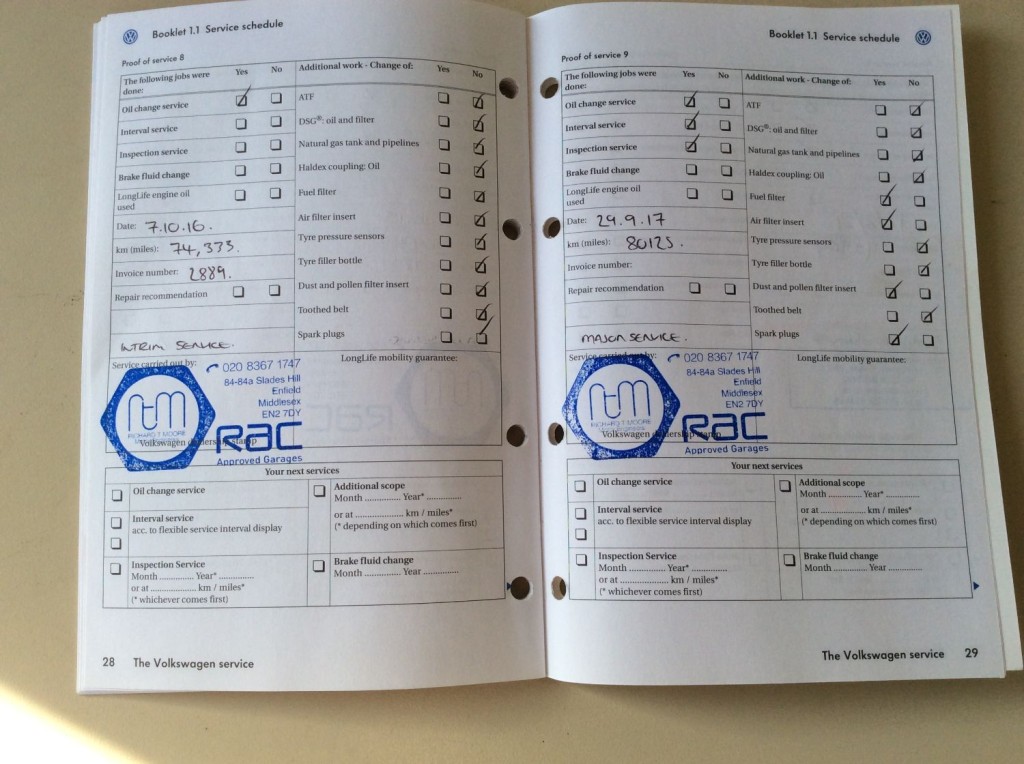 Booklet 1.1 Service schedule
Proof of service 8
The following jobs were done: Yes No
Oil change service
Interval service
Inspection service
Brake fluid change
LongLife engine oil used
Date: 7.10.16.
km (miles): 74,333.
Invoice number: 2889.
Repair recommendation
INTRIM SERVICE.
Additional work - Change of: Yes No
ATF
DSG®: oil and filter
Natural gas tank and pipelines
Haldex coupling: Oil
Fuel filter
Air filter insert
Tyre pressure sensors
Tyre filler bottle
Dust and pollen filter insert
Toothed belt
Spark plugs
Service carried out by:
020 8367 1747
84-84a Slades Hill
Enfield
Middlesex
EN2 7DY
rtm
RICHARD T MOORE
Volkswagen dealership stamp
RAC
Approved Garages
LongLife mobility guarantee:
Your next services
Oil change service
Interval service
acc. to flexible service interval display
Inspection Service
Month .............. Year* ..............
or at ..................... km / miles*
(* whichever comes first)
Additional scope
Month .............. Year* ..............
or at ..................... km / miles*
(* depending on which comes first)
Brake fluid change
Month .............. Year ..............
28 The Volkswagen service
Booklet 1.1 Service schedule
Proof of service 9
The following jobs were done: Yes No
Oil change service
Interval service
Inspection service
Brake fluid change
LongLife engine oil used
Date: 29.9.17
km (miles): 80125.
Invoice number:
Repair recommendation
MAJOR SERVICE.
Additional work - Change of: Yes No
ATF
DSG®: oil and filter
Natural gas tank and pipelines
Haldex coupling: Oil
Fuel filter
Air filter insert
Tyre pressure sensors
Tyre filler bottle
Dust and pollen filter insert
Toothed belt
Spark plugs
Service carried out by:
020 8367 1747
84-84a Slades Hill
Enfield
Middlesex
EN2 7DY
rtm
RICHARD T MOORE
Volkswagen dealership stamp
RAC
Approved Garages
LongLife mobility guarantee:
Your next services
Oil change service
Interval service
acc. to flexible service interval display
Inspection Service
Month .............. Year* ..............
or at ..................... km / miles*
(* whichever comes first)
Additional scope
Month .............. Year* ..............
or at ..................... km / miles*
(* depending on which comes first)
Brake fluid change
Month .............. Year ..............
The Volkswagen service 29